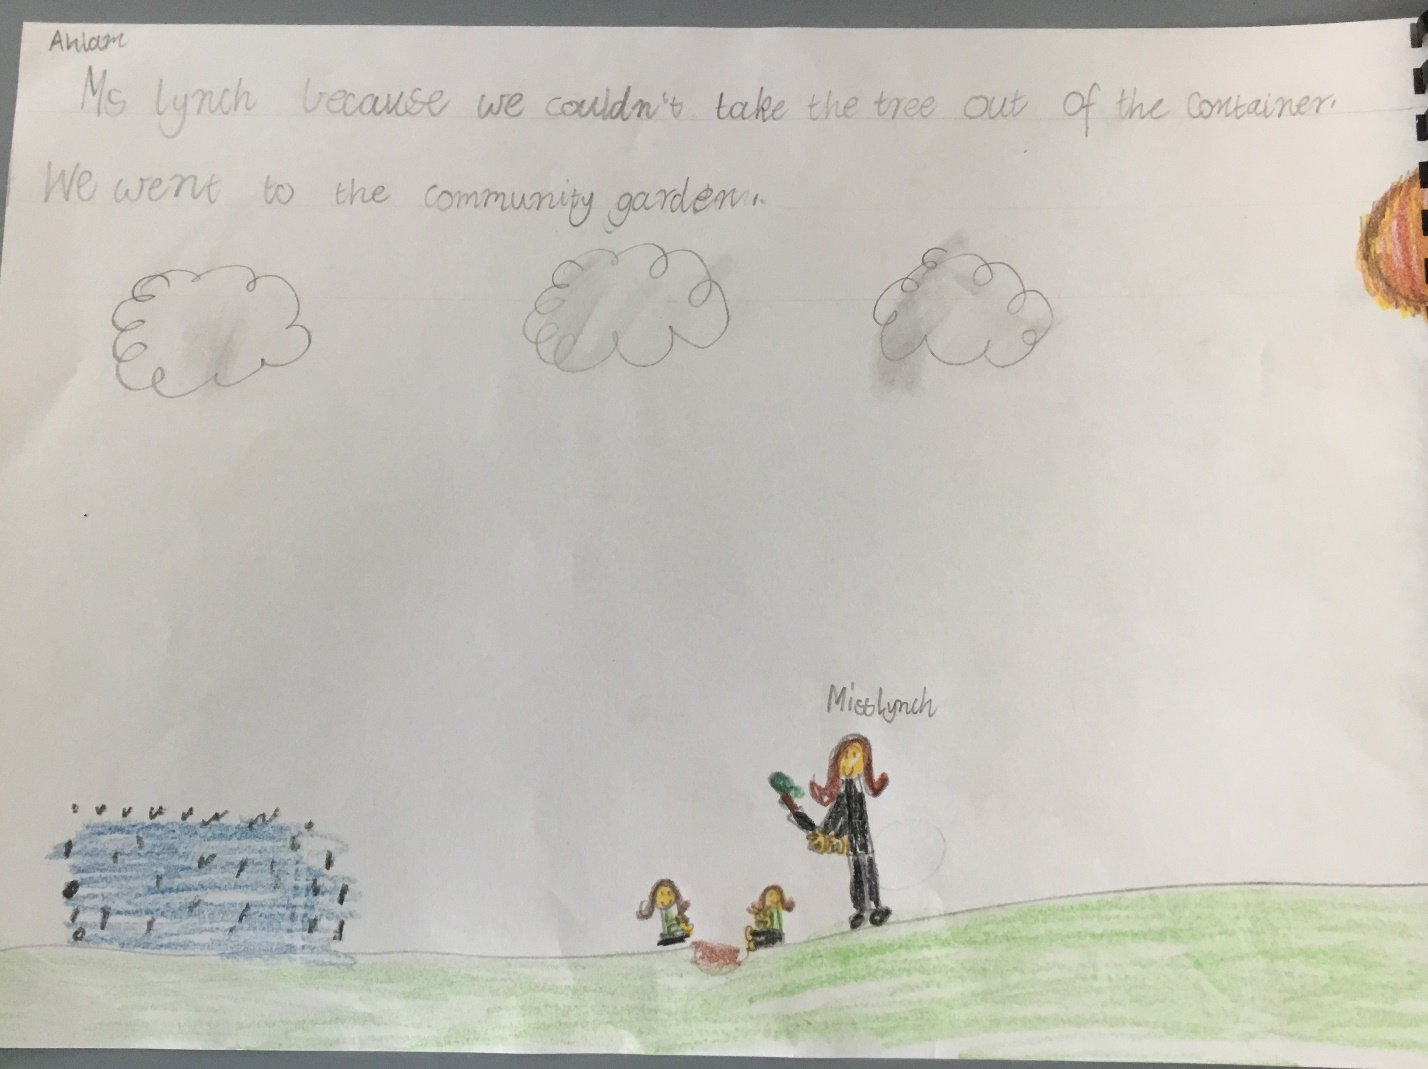 Ahlam
Ms lynch because we couldn't take the tree out of the container.
We went to the community garden.
Miss Lynch